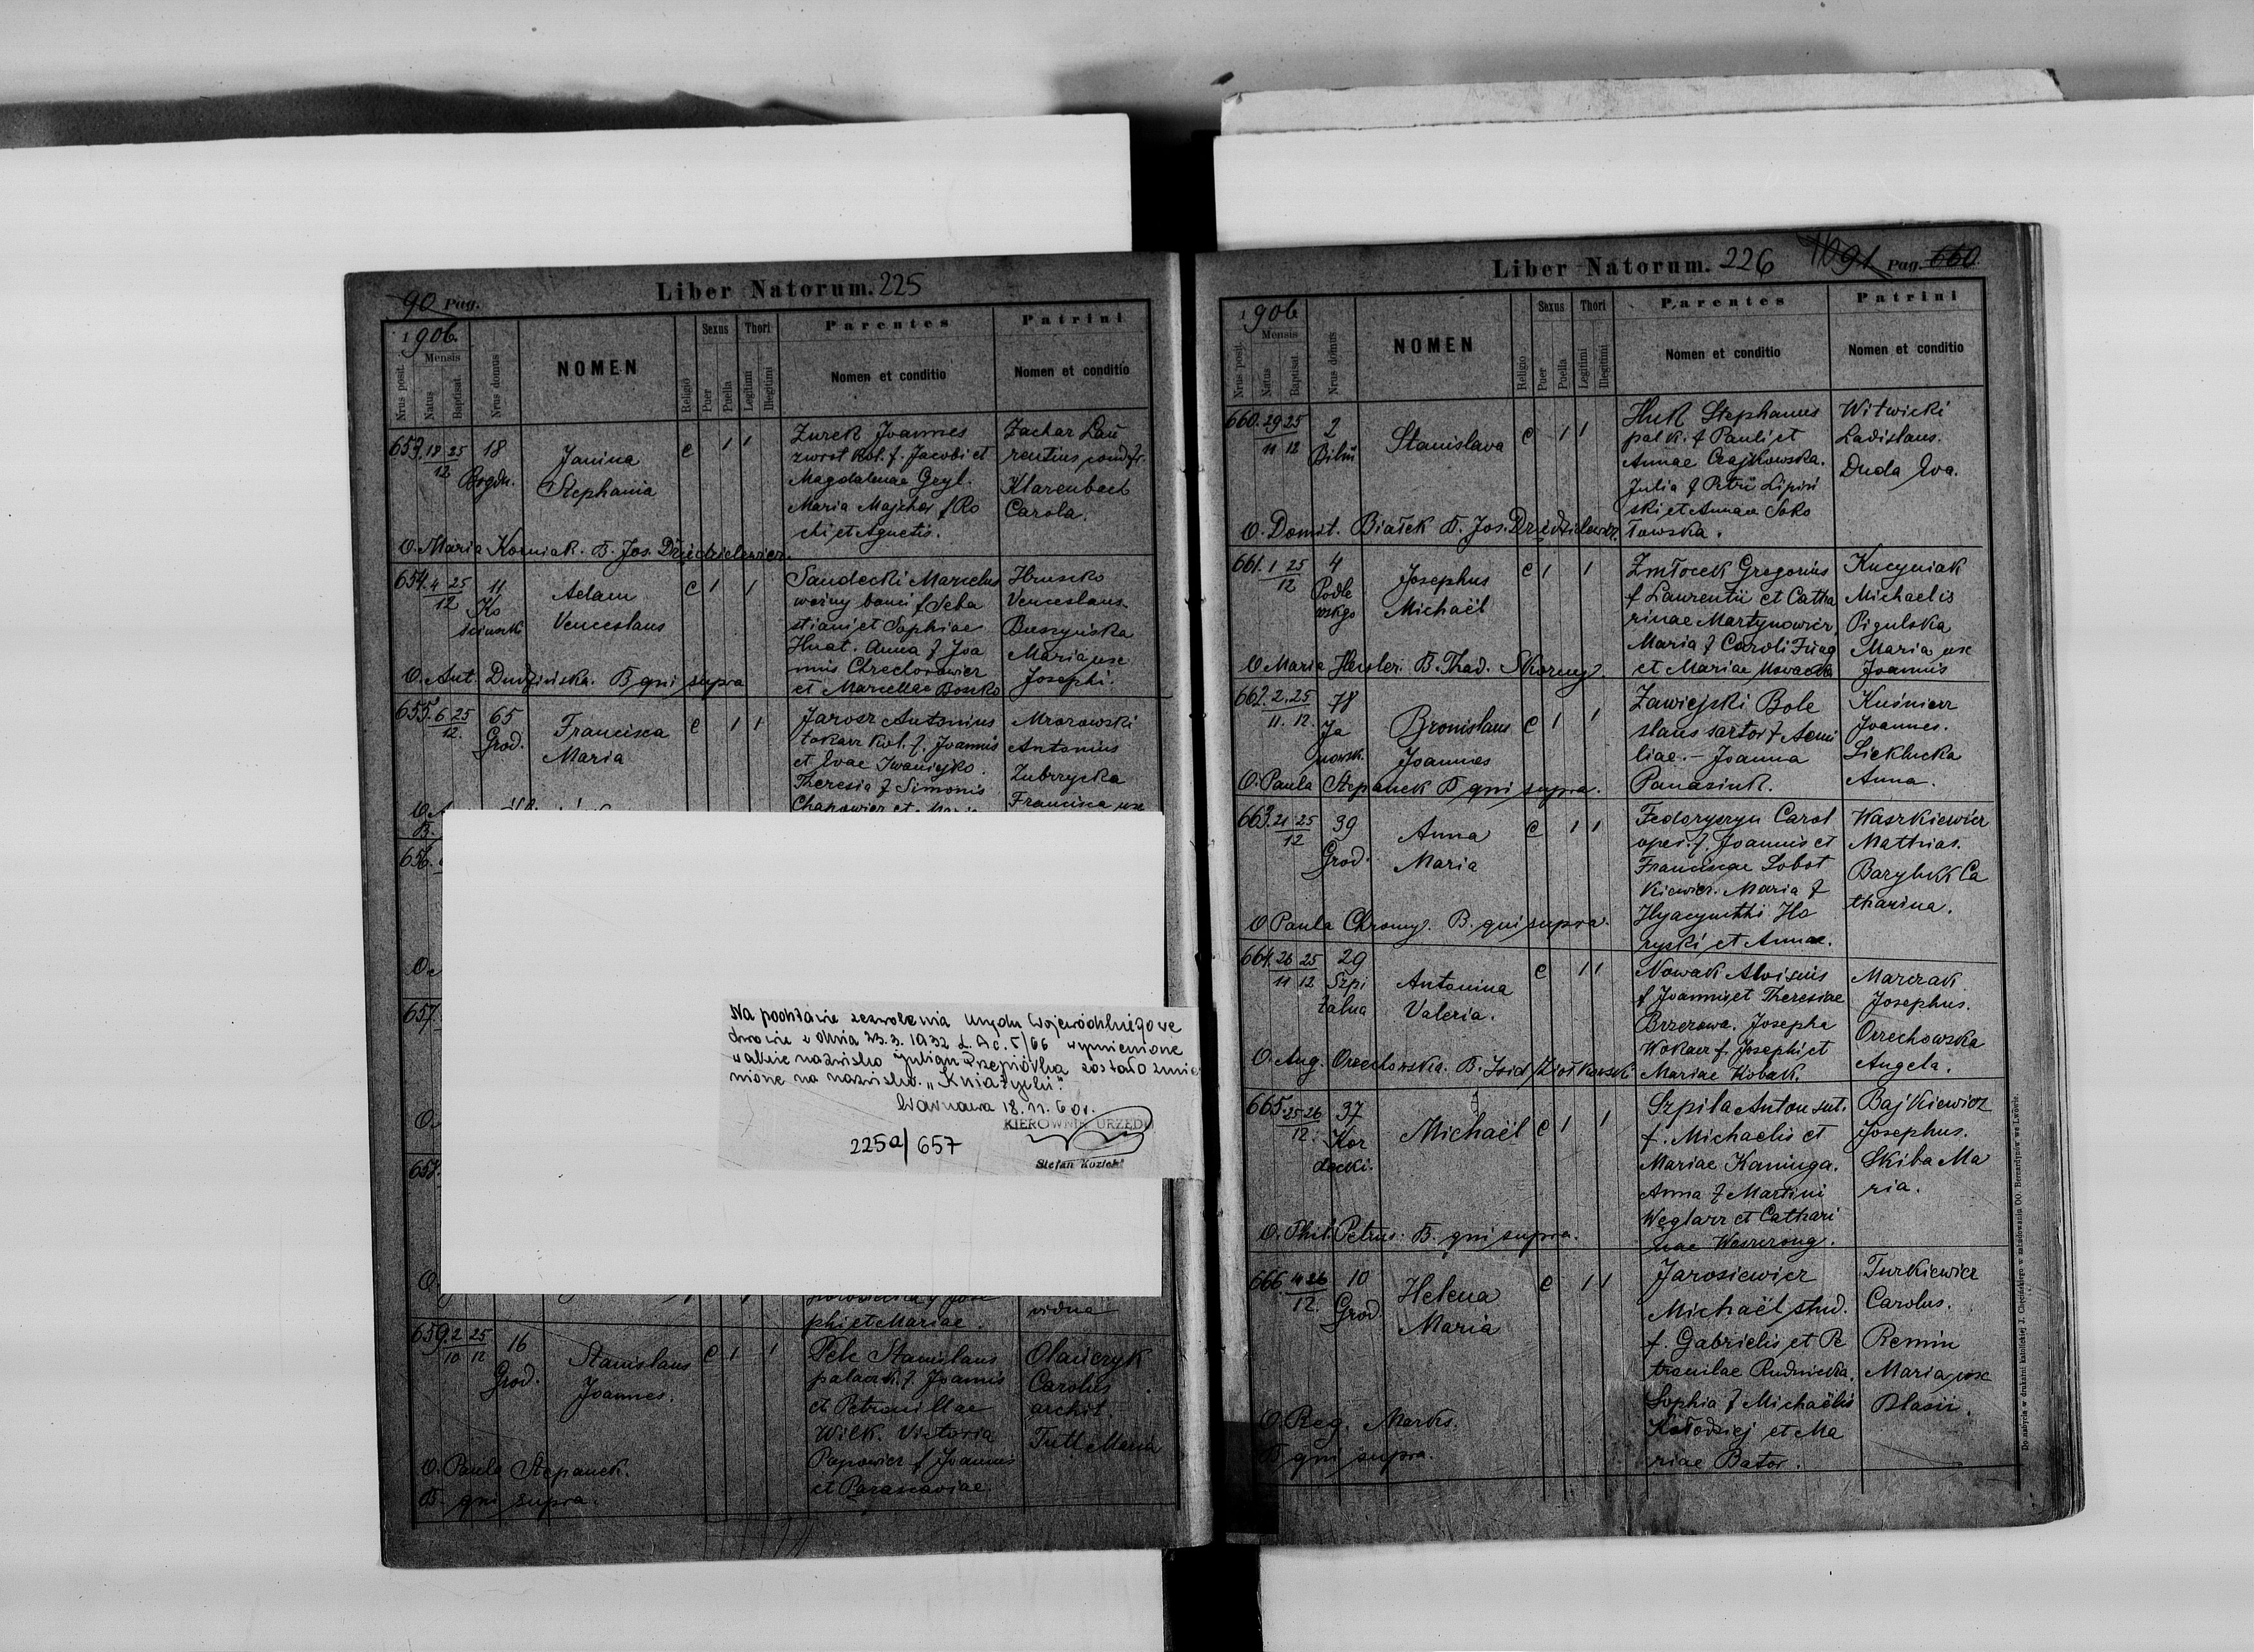 90 Pag.
Liber Natorum. 225
1906.
Mensis
Nrus posit.
Natus
Baptisat.
Nrus domus
NOMEN
Religio
Sexus
Puer
Puella
Thori
Legitimi
Illegitimi
Parentes
Nomen et conditio
Patrini
Nomen et conditio
653. 18/12 25 18
Bogdn.
Janina
Stephania
c 1 1
Żurek Joannes
zwrot. kol. f. Jacobi et
Magdalenae Gryl.
Maria Majcher f Ro
chi et Agnetis.
Zachar Lau
rentius cond. fr.
Klarenbach
Carola.
O. Maria Korniak. B. Jos. Dziedzielewicz.
654. 4 25
12
11
Ko
ściuszki
Adam
Venceslaus
c 1 1
Sandecki Marcelus
woźny banci f Seba
stiani et Sophiae
Hnat. Anna f Joa
nnis Chrechorowicz
et Marcellae Boszko
Hruszko
Venceslaus.
Buszyńska
Maria use
Josephi.
O. Ant. Dudzińska. B qui supra
655. 6 25
12.
65
Grod.
Francisca
Maria
c 1 1
Jarosz Antonius
tokarz kol. f. Joannis
et Evae Iwaniejko.
Theresia f Simonis
Mrozowski
Antonius
Zubrzycka
Francisca use
B.
656.
657.
Na podstawie zezwolenia Urzędu Wojewódzkiego we
Lwowie z dnia 23.3.1932 L. Ac. 5/66 wymienione
w akcie nazwisko Julian Przepiórka zostało zmie
nione na nazwisko "Kniażycki".
Warszawa 18.11.60 r.
KIEROWNIK URZĘDU
225a/657
Stefan Kozicki
658.
phi et Mariae.
vidua
659. 2 25
10 12
16
Grod.
Stanislaus
Joannes.
c 1 1
Pelc Stanislaus
palacz k. f Joannis
et Petronillae
Wilk. Victoria
Popowicz f Joannis
et Parasceviae.
Olańczyk
Carolus
archit.
Tutt Maria
O. Paula Stepanek.
B. qui supra.
Liber Natorum. 226
1091 Pag. 660.
1906
Mensis
Nrus posit.
Natus
Baptisat.
Nrus domus
NOMEN
Religio
Sexus
Puer
Puella
Thori
Legitimi
Illegitimi
Parentes
Nomen et conditio
Patrini
Nomen et conditio
660. 29 25
11 12
2
Stanislava
c 1 1
Huk Stephanus
pal k. f Pauli et
Annae Czajkowska.
Julia f Petri Lipiń
ski et Annae Soko
łowska.
Witwicki
Ladislaus.
Duda Eva.
O. Domit. Białek B. Jos. Dziedzielewicz.
661. 1 25
12
4
Podle
wskgo
Josephus
Michaël
c 1 1
Zmłocek Gregorius
f Laurentii et Catha
rinae Martynowicz.
Maria f Caroli Friag
et Mariae Nowacka
Kucyniak
Michaelis
Pigulska
Maria use
Joannis
O Maria Hensler. B. Thad. Skorny.
662. 2. 25
11. 12.
78
Ja
nowsk.
Bronislaus
Joannes
c 1 1
Zawiejski Bole
slaus sartor f Aemi
liae. — Joanna
Panasiuk.
Kuśnierz
Joannes.
Sieklucka
Anna.
O. Paula Stepanek B qui supra.
663. 21 25
12
39
Grod.
Anna
Maria
c 1 1
Fedoryszyn Carol
oper. f. Joannis et
Franciscae Sobot
kiewicz. Maria f
Hyacynthi Ho
ryski et Annae.
Waszkiewicz
Mathias.
Barylukk Ca
tharina.
O Paula Chromy. B. qui supra.
664. 26 25
11 12
29
Szpi
talna
Antonina
Valeria.
c 1 1
Nowak Aloisius
f Joannis et Theresiae
Brzezowa. Josepha
Wokacz f. Josephi et
Mariae Kobak.
Marczak
Josephus.
Orzechowska
Angela.
O. Aug. Orzechowska. B. Isid Ziołkowski
665. 25 26
12.
37
Kor
decki.
Michaël
c 1 1
Szpila Anton sut.
f. Michaelis et
Mariae Kaminga.
Anna f Martini
Węglarz et Cathari
nae Waszczong.
Bajkiewicz
Josephus.
Skiba Ma
ria.
O. Phil. Petrus. B. qui supra.
666. 4 26
12.
10
Grod
Helena
Maria
c 1 1
Jarosiewicz
Michaël stud.
f. Gabrielis et Pe
tronilae Rudnicka.
Sophia f Michaëlis
Kołodziej et Ma
riae Bator.
Turkiewicz
Carolus.
Remin
Maria use
Blasii.
O. Reg. Marks.
B qui supra.
Do nabycia w drukarni katolickiej J. Chęcińskiego w zabudowaniu OO. Bernardynów we Lwowie.